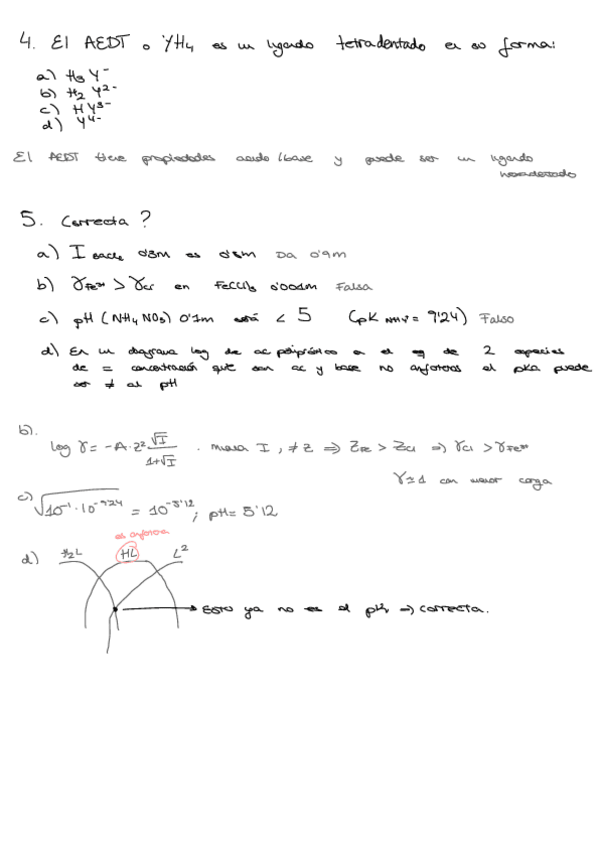 4. El AEDT o YH4 es un ligando tetradentado en su forma:
a) H3Y-
b) H2Y2-
c) HY3-
d) Y4-
El AEDT tiene propiedades acido/base y puede ser un ligando
hexadentado
5. Correcta?
a) I es Da 0'9m
b) γFe3+ > γCl en FeCl3 0'001m Falsa
c) pH (NH4NO3) 0'1m está < 5 (pK NH4+ = 9'24) Falso
d) En un diagrama log de ac poliprótico en el eq de 2 especies
de = concentración que son ac y base no anfóteros el pKa puede
ser ≠ al pH
b).
log γ = -A·Z² √I / 1+√I . misma I, ≠ Z ⇒ ZFe > ZCl ⇒ γCl > γFe3+
γ≈1 con menor carga
c) √10-1·10-9'24 = 10-5'12 ; pH = 5'12
es anfótero
d) H2L HL L2
Esto ya no es el pKa ⇒ correcta.